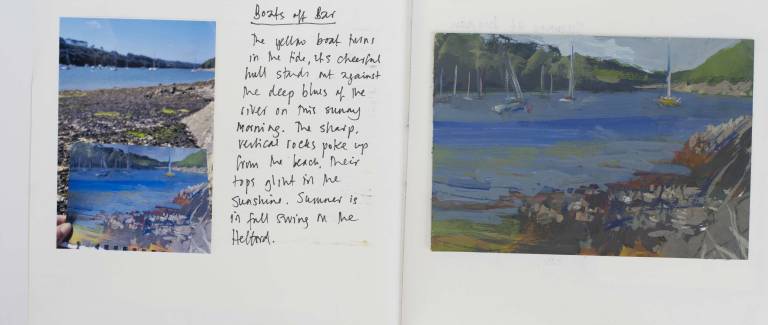 Boats off Bar
The yellow boat turns
in the tide, its cheerful
hull stands out against
the deep blues of the
river on this sunny
morning. The sharp,
vertical rocks poke up
from the beach, their
tops glint in the
Sunshine. Summer is
in full swing on the
Helford.